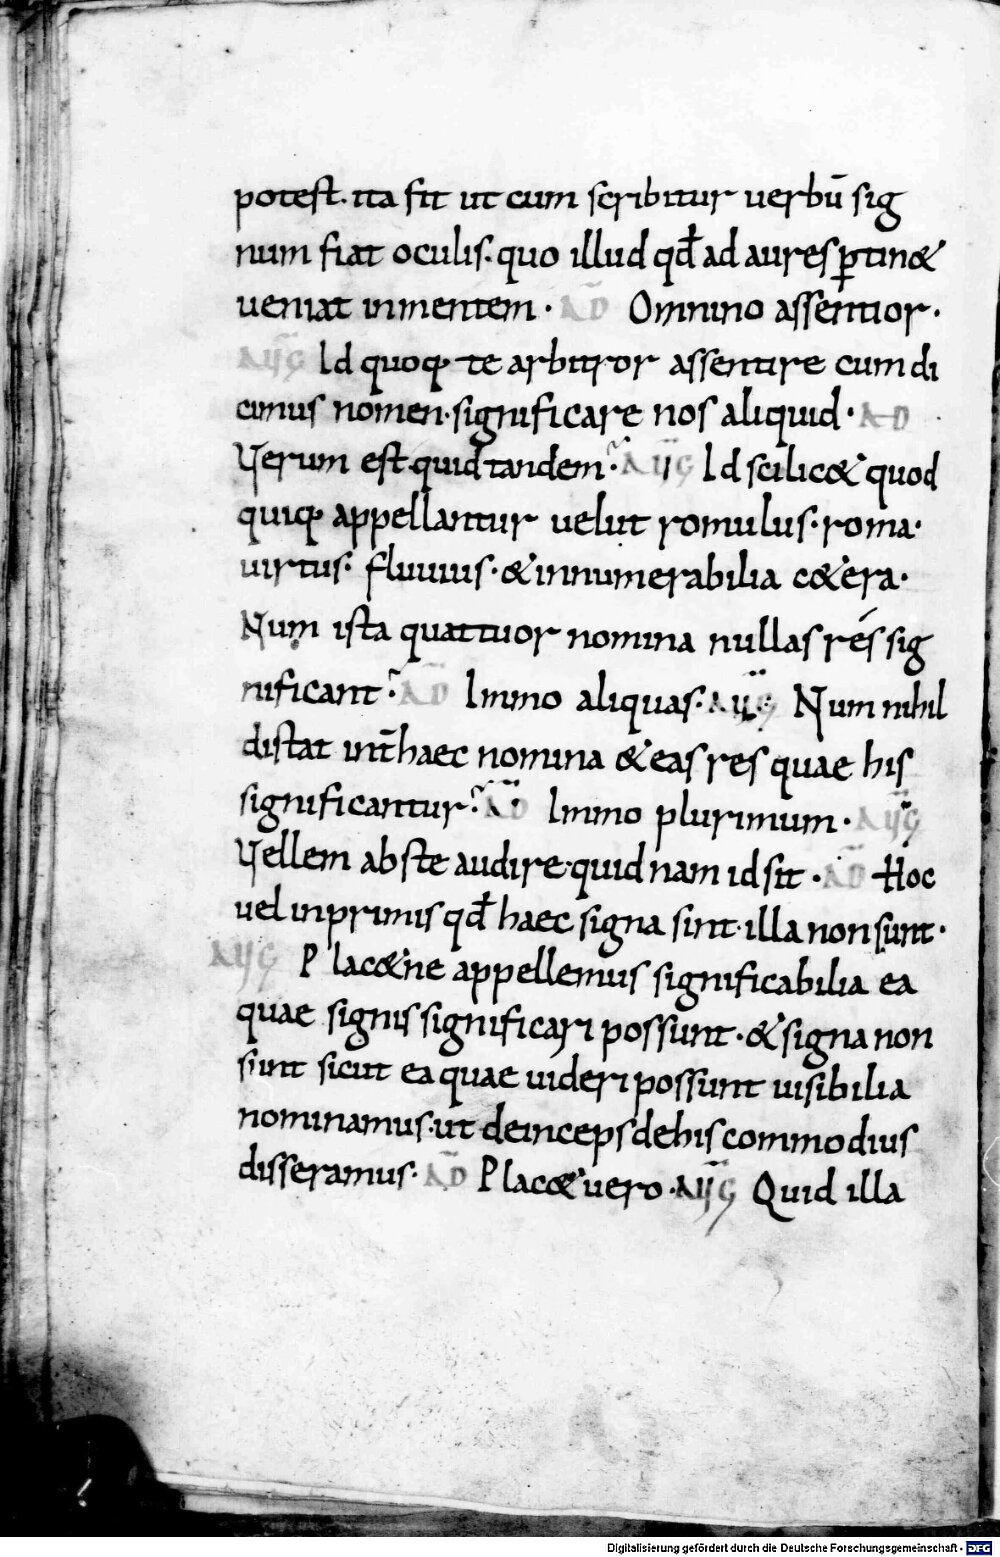 potest. ita fit ut cum scribitur uerbū sig
num fiat oculis. quo illud qđ ad aures ꝑtin&
ueniat in mentem. AD Omnino assentior.
AUG Id quoq. te arbitror assentire cum di
cimus nomen. significare nos aliquid. AD
Verum est. quid tandem? AUG Id scilic& quod
quiq. appellantur uelut romulus. roma.
uirtus. fluuius. & innumerabilia c&era.
Num ista quattuor nomina nullas rés sig
nificant? AD Immo aliquas. AUG Num nihil
distat int̄ haec nomina & eas res quae his
significantur? AD Immo plurimum. AUG
Vellem abs te audire. quid nam id sit. AD Hoc
uel inprimis qđ haec signa sint. illa non sunt.
AUG Plac&ne appellemus significabilia ea
quae signis significari possunt. & signa non
sunt sicut ea quae uideri possunt uisibilia
nominamus. ut deinceps de his commodius
disseramus. AD Plac& uero. AUG Quid illa
Digitalisierung gefördert durch die Deutsche Forschungsgemeinschaft - DFG